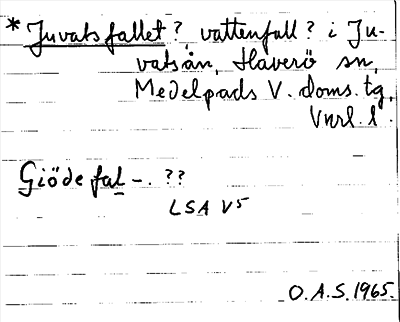 * Juvatsfallet?, vattenfall? i Ju-
vatsån, Haverö sn,
Medelpads V. doms. tg,
Vnrl. l.
Giöde fal -. ??
LSA V5
O.A.S. 1965.